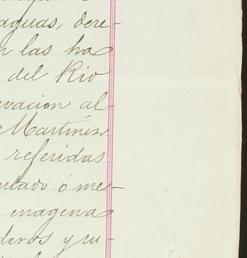 aguas, dere-
n las ha
del Rio
evacion al-
Martinez
referidas
ó me-
enagena
deros y su-